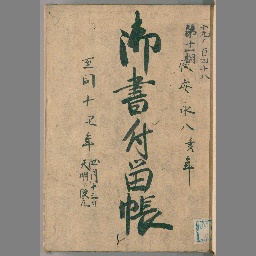 第十一期
従安永八亥年
御書付留帳
至同十丑年
四月十三日
天明と改元